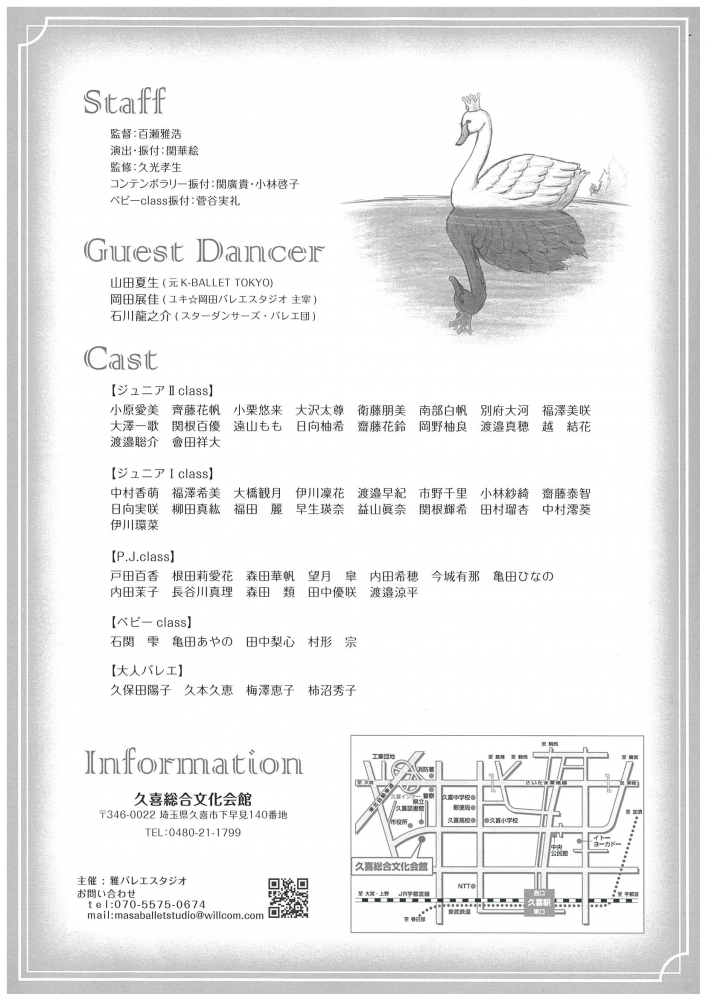 Staff
監督：百瀬雅浩
演出・振付：関華絵
監修：久光孝生
コンテンポラリー振付：関廣貴・小林啓子
ベビーclass振付：菅谷実礼
Guest Dancer
山田夏生 ( 元 K-BALLET TOKYO)
岡田展佳 ( ユキ☆岡田バレエスタジオ 主宰 )
石川龍之介 ( スターダンサーズ・バレエ団 )
Cast
【ジュニアⅡclass】
小原愛美　齊藤花帆　小栗悠来　大沢太尊　衛藤朋美　南部白帆　別府大河　福澤美咲
大澤一歌　関根百優　遠山もも　日向柚希　齋藤花鈴　岡野柚良　渡邉真穂　越　結花
渡邉聡介　會田祥大
【ジュニアⅠclass】
中村香萌　福澤希美　大橋観月　伊川凜花　渡邉早紀　市野千里　小林紗綺　齋藤泰智
日向実咲　柳田真紘　福田　麗　早生瑛奈　益山眞奈　関根輝希　田村瑠杏　中村澪葵
伊川環菜
【P.J.class】
戸田百香　根田莉愛花　森田華帆　望月　皐　内田希穂　今城有那　亀田ひなの
内田茉子　長谷川真理　森田　類　田中優咲　渡邉涼平
【ベビー class】
石関　雫　亀田あやの　田中梨心　村形　宗
【大人バレエ】
久保田陽子　久本久恵　梅澤恵子　柿沼秀子
Information
久喜総合文化会館
〒346-0022 埼玉県久喜市下早見140番地
TEL:0480-21-1799
主催：雅バレエスタジオ
お問い合わせ
tel:070-5575-0674
mail:masaballetstudio@willcom.com
工業団地
消防署
至 大宮
東北自動車道
久喜インター
警察
県立
久喜図書館
市役所
久喜中学校
郵便局
久喜高校
久喜小学校
さいたま栗橋線
至 栗橋
至 加須
中央
公民館
イトー
ヨーカドー
久喜総合文化会館
NTT
至 大宮・上野
JR宇都宮線
西口
久喜駅
東口
至 宇都宮
至 春日部
東武鉄道